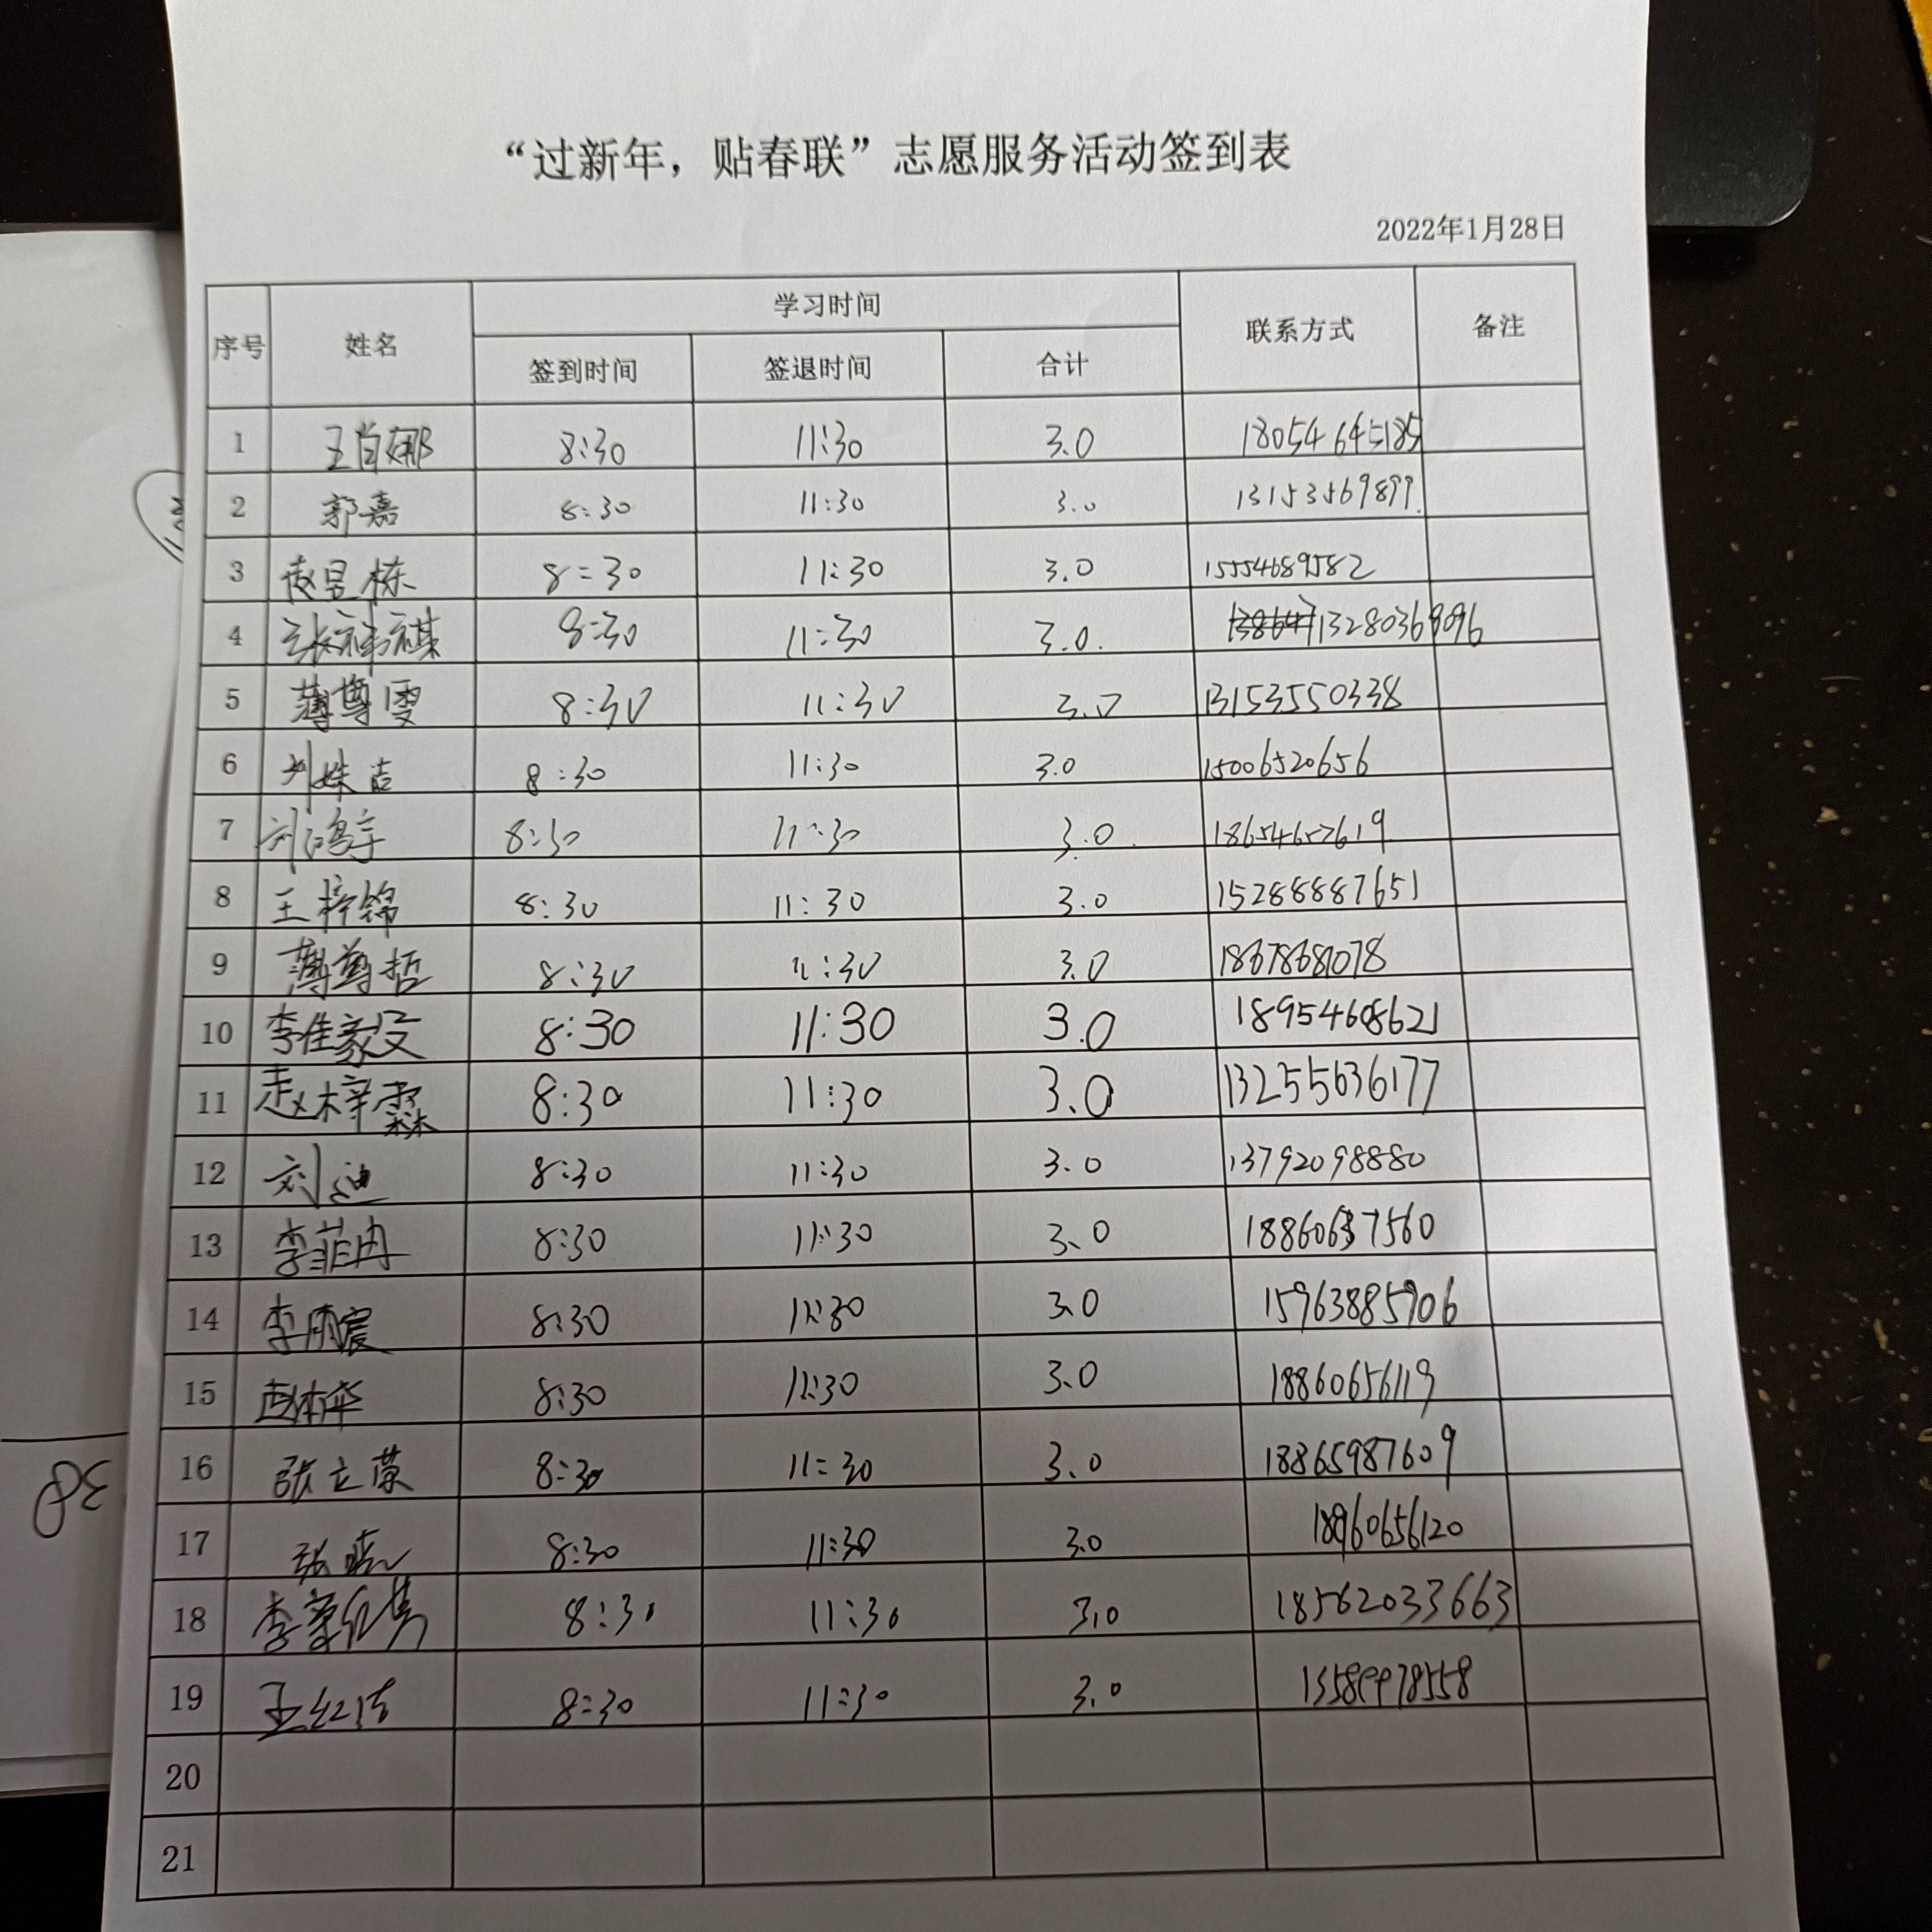 “过新年，贴春联”志愿服务活动签到表
2022年1月28日
序号 姓名 学习时间 联系方式 备注
签到时间 签退时间 合计
1 王肖娜 8:30 11:30 3.0 18054645185
2 郭嘉 8:30 11:30 3.0 13153569899
3 赵昱栋 8:30 11:30 3.0 15554689582
4 张祥祺 8:30 11:30 3.0. 13280369096
5 薄尊雯 8:30 11:30 3.0 13153550338
6 刘姝言 8:30 11:30 3.0 15006520656
7 刘鸿宇 8:30 11:30 3.0 18654652619
8 王梓锦 8:30 11:30 3.0 15288887651
9 薄尊哲 8:30 11:30 3.0
10 李佳毅 8:30 11:30 3.0 18954608621
11 赵梓霖 8:30 11:30 3.0 13255636177
12 刘迪 8:30 11:30 3.0 13792098880
13 李菲冉 8:30 11:30 3.0 18860637560
14 李雨宸 8:30 11:30 3.0 15963885906
15 8:30 11:30 3.0 18860656119
16 张立荣 8:30 11:30 3.0 18865987609
17 张晓 8:30 11:30 3.0
18 李 8:30 11:30 3.0 18562033663
19 王红洁 8:30 11:30 3.0
20
21
38